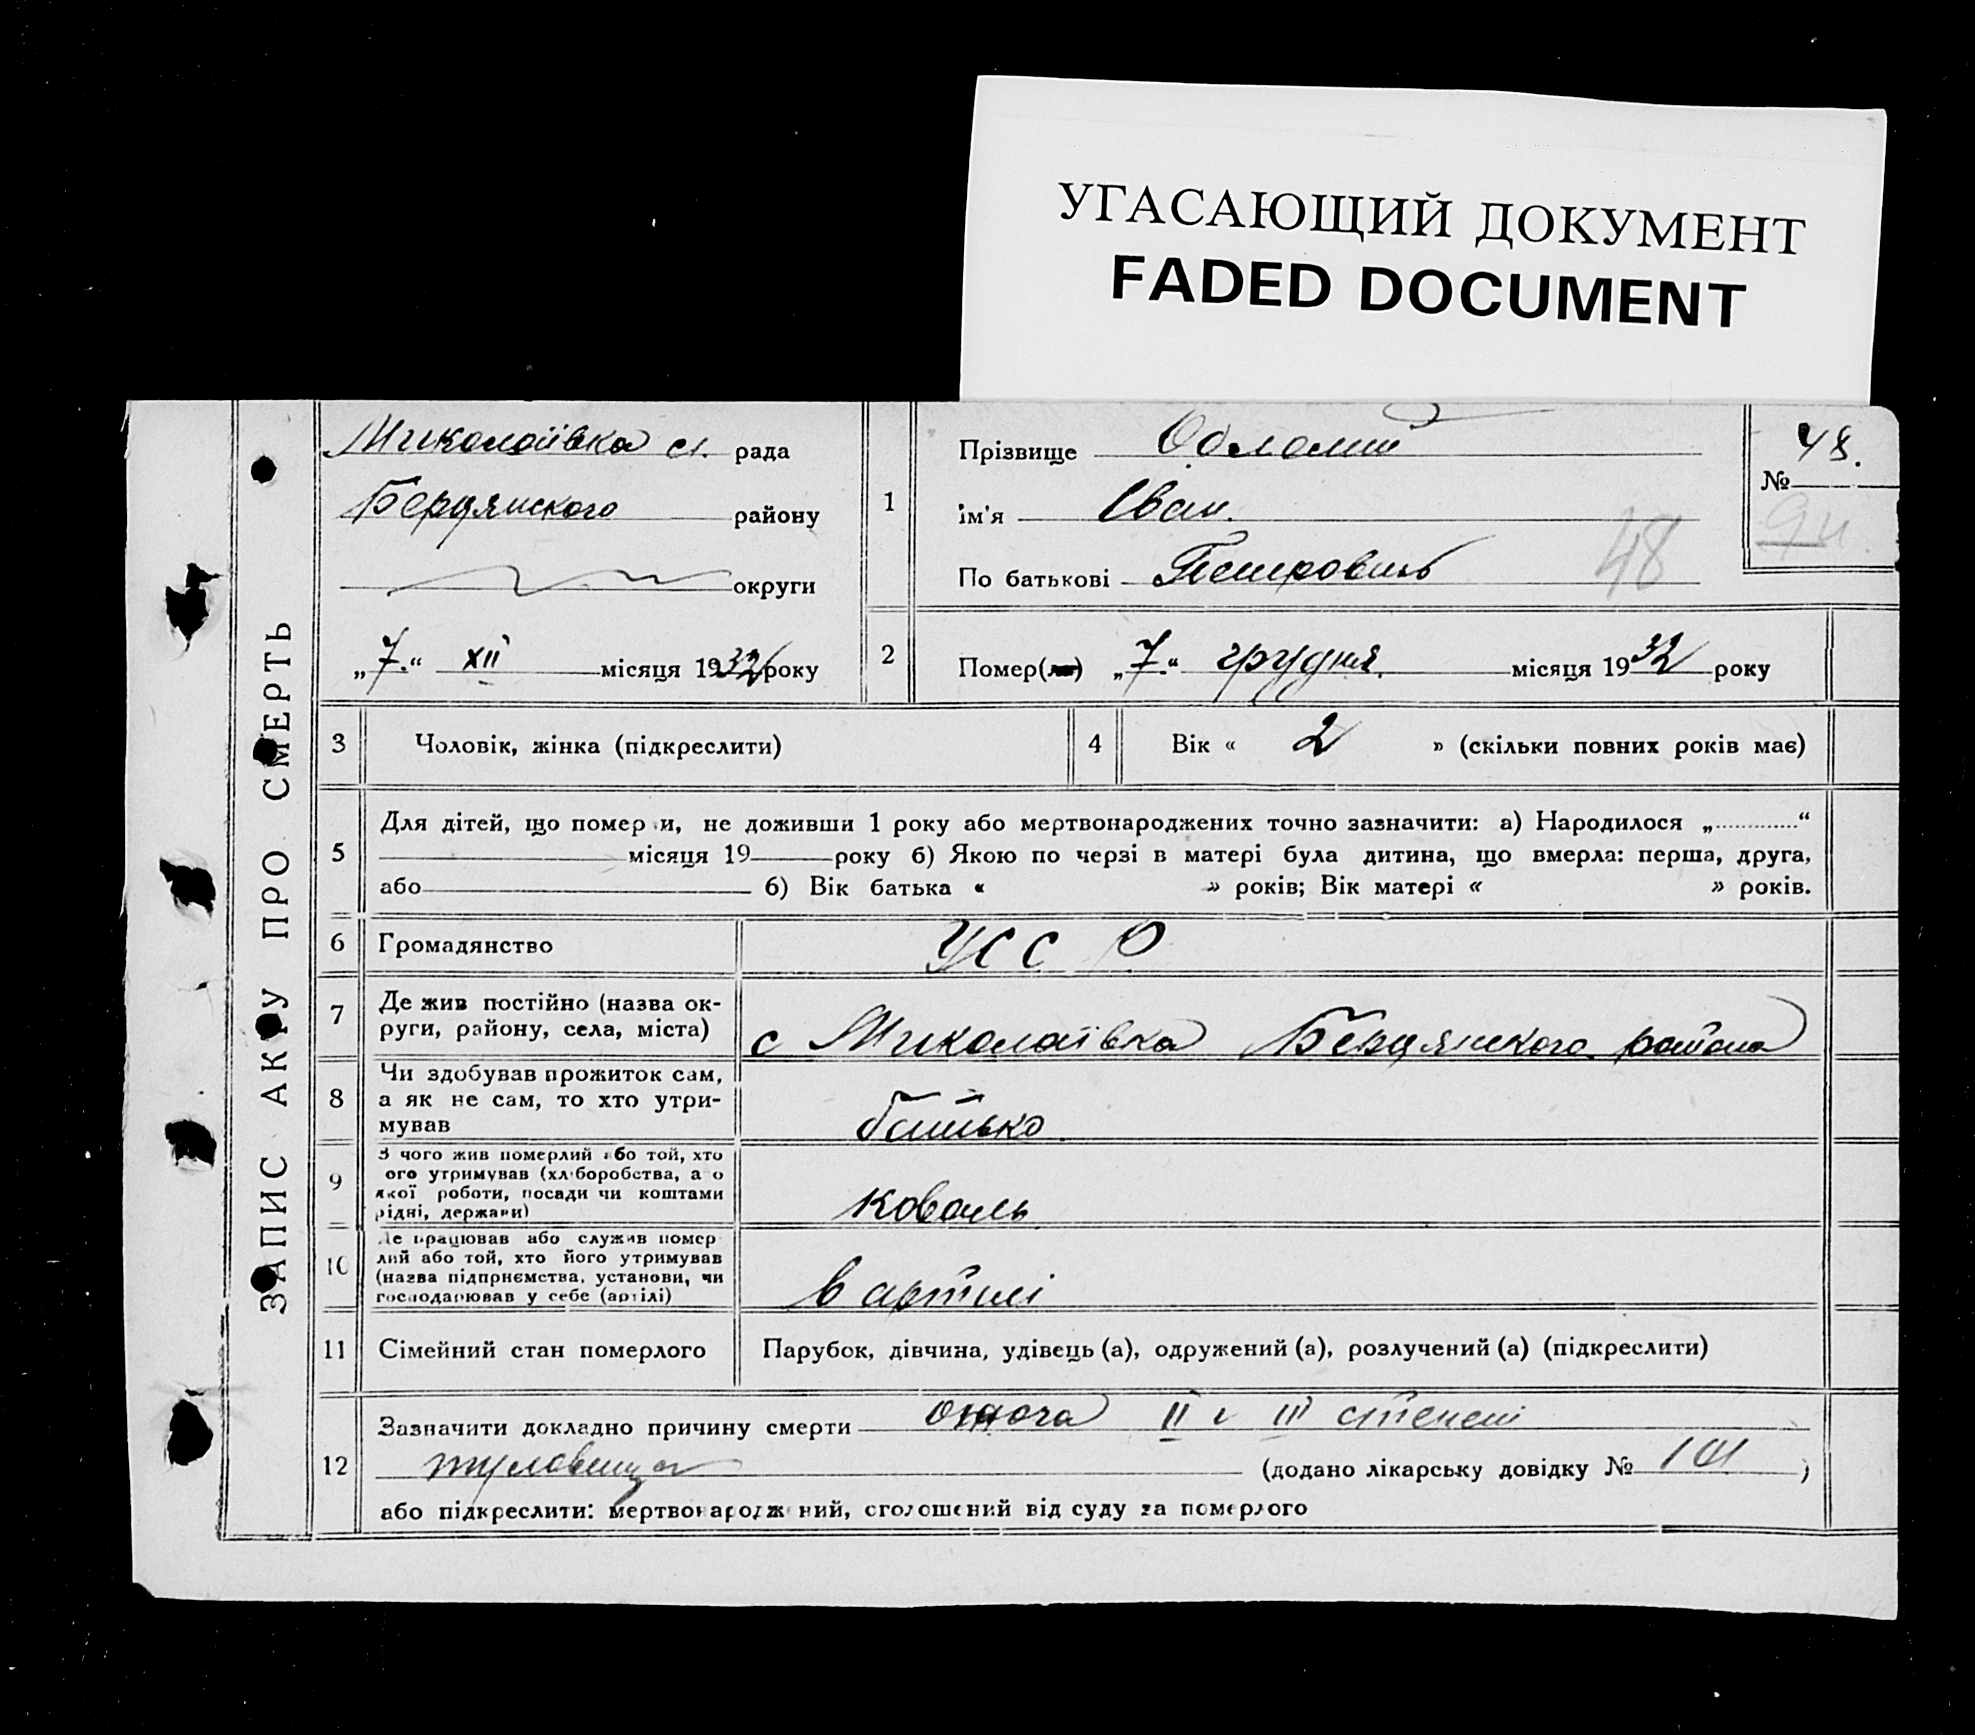 УГАСАЮЩИЙ ДОКУМЕНТ
FADED DOCUMENT
ЗАПИС АКТУ ПРО СМЕРТЬ
Миколаївка с. рада
Бердянского району
округи
„7.“ XII місяця 1932 року
1
Прізвище
ім'я Іван.
По батькові Петрович
48
№ 48.
2
Помер(ла) „7.“ грудня. місяця 1932 року
3 Чоловік, жінка (підкреслити)
4 Вік « 2 » (скільки повних років має)
5 Для дітей, що померли, не доживши 1 року або мертвонароджених точно зазначити: а) Народилося „ “
місяця 19 року б) Якою по черзі в матері була дитина, що вмерла: перша, друга,
або б) Вік батька « » років; Вік матері « » років.
6 Громадянство УССР
7 Де жив постійно (назва ок-
руги, району, села, міста)
с Миколаївка Бердянского района
8 Чи здобував прожиток сам,
а як не сам, то хто утри-
мував
батько
9 З чого жив померлий або той, хто
його утримував (хліборобства, а о
якої роботи, посади чи коштами
рідні, держави)
коваль
10 Де працював або служив помер
лий або той, хто його утримував
(назва підприємства, установи, чи
господарював у себе (артілі)
в артилі
11 Сімейний стан померлого Парубок, дівчина, удівець (а), одружений (а), розлучений (а) (підкреслити)
12 Зазначити докладно причину смерти II і III степені
туловища (додано лікарську довідку № 101 )
або підкреслити: мертвонароджений, оголошений від суду за померлого